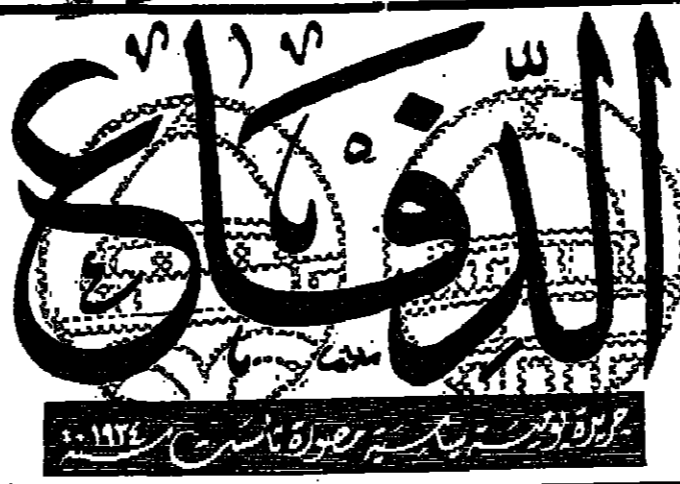 الدّفاع
جريدة يومية سياسية مصورة تأسست سنة ١٩٣٤